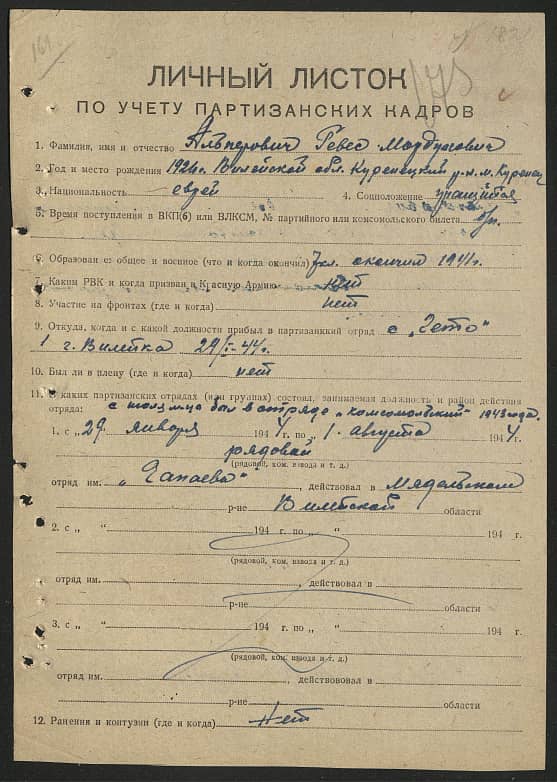 161.
ЛИЧНЫЙ ЛИСТОК
ПО УЧЕТУ ПАРТИЗАНСКИХ КАДРОВ
1. Фамилия, имя и отчество Альперович Гевес Мордухович
2. Год и место рождения 1926г. Вилейской обл. Куренецкий р-н. м. Куренец
3. Национальность еврей 4. Соцположение учащийся
5. Время поступления в ВКП(б) или ВЛКСМ, № партийного или комсомольского билета б/п.
6. Образован е: общее и военное (что и когда окончил) 7 кл. окончил 1941г.
7. Каким РВК и когда призван в Красную Армию нет
8. Участие на фронтах (где и когда) нет
9. Откуда, когда и с какой должности прибыл в партизанский отряд с „Гето"
г. Вилейка 29/I-44г.
10. Был ли в плену (где и когда) нет
11. В каких партизанских отрядах (или группах) состоял, занимаемая должность и район действия
отряда: был в отряде „Комсомольский" 1943 года.
1. с „29 января 1944 г. по „1. августа 1944 г.
рядовой
(рядовой, ком. взвода и т. д.)
отряд им. „Чапаева" , действовал в Мядельском
р-не Вилейской области
2. с „ “ 194 г. по „ “ 194 г.
(рядовой, ком. взвода и т. д.)
отряд им. , действовал в
р-не области
3. с „ “ 194 г. по „ “ 194 г.
(рядовой, ком. взвода и т. д.)
отряд им. , действововал в
р-не области
12. Ранения и контузии (где и когда) нет